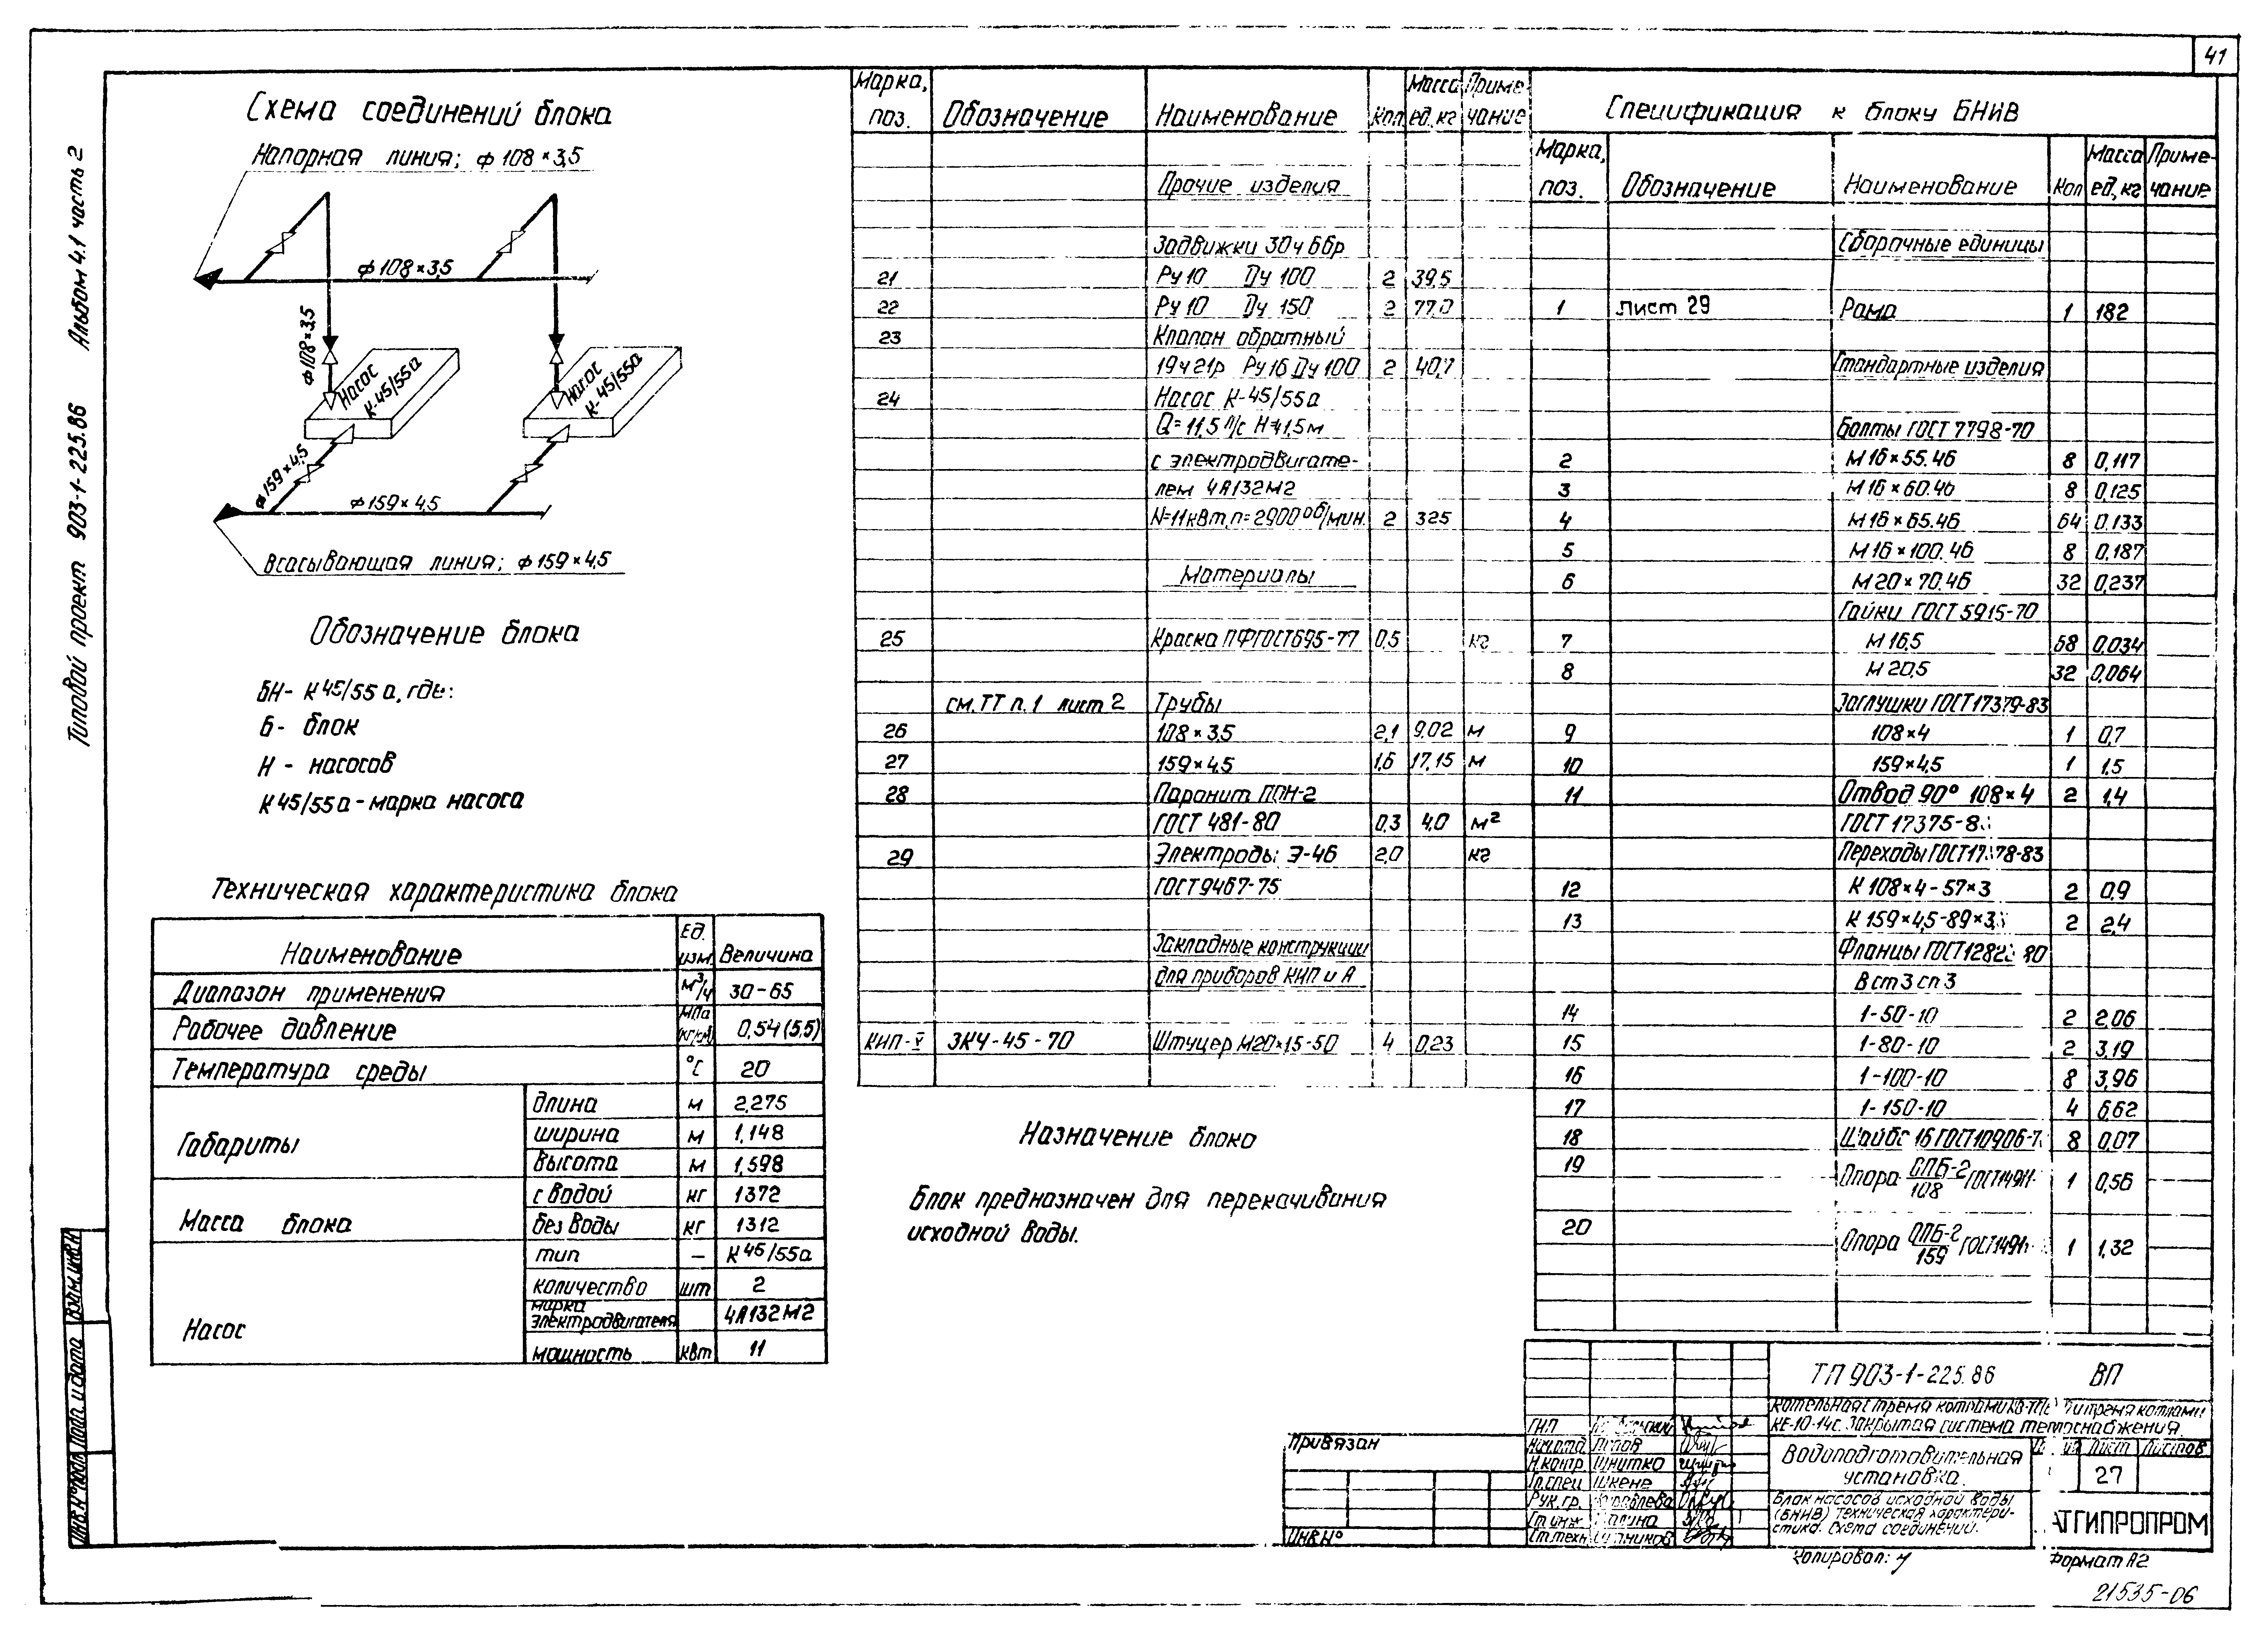 41
Альбом 4.1 часть 2
Типовой проект 903-1-225.86
Схема соединений блока
Напорная линия; ф 108×3,5
ф 108×3,5
ф108×3,5
Насос К-45/55а
Насос К-45/55а
ф159×4,5
ф 159×4,5
Всасывающая линия; ф 159×4,5
Обозначение блока
БН- К 45/55 а, где:
Б- блок
Н - насосов
К 45/55а - марка насоса
Техническая характеристика блока
Наименование Ед. изм. Величина
Диапазон применения м³/ч 30-65
Рабочее давление МПа 0,54 (5,5)
Температура среды °С 20
Габариты
длина м 2,275
ширина м 1,148
высота м 1,598
Масса блока
с водой кг 1372
без воды кг 1312
Насос
тип — К 45/55а
количество шт 2
марка электродвигателя 4А132М2
мощность квт 11
Марка, поз. Обозначение Наименование Кол. Масса ед. кг Приме-чание
Прочие изделия
Задвижки 30ч6бр
21 Ру 10 Ду 100 2 39,5
22 Ру 10 Ду 150 2 77,0
23 Клапан обратный
19ч21р Ру16 Ду 100 2 40,7
24 Насос К-45/55а
Q=11,5 л/с Н=41,5м
с электродвигате-
лем 4А132М2
N=11кВт, n=2900 об/мин. 2 325
Материалы
25 Краска ПФ ГОСТ 695-77 0,5 кг
см. ТТ п.1 лист 2 Трубы
26 108×3,5 2,1 9,02 м
27 159×4,5 1,6 17,15 м
28 Паронит ПОН-2
ГОСТ 481-80 0,3 4,0 м²
29 Электроды Э-46 2,0 кг
ГОСТ 9467-75
Закладные конструкции
для приборов КИП и А
КИП-V ЗК4-45-70 Штуцер М20×1,5-50 4 0,23
Назначение блока
Блок предназначен для перекачивания
исходной воды.
Спецификация к блоку БНИВ
Марка, поз. Обозначение Наименование Кол Масса ед, кг Приме-чание
Сборочные единицы
1 лист 29 Рама 1 182
Стандартные изделия
Болты ГОСТ 7798-70
2 М16×55.46 8 0,117
3 М16×60.46 8 0,125
4 М16×65.46 64 0,133
5 М16×100.46 8 0,187
6 М20×70.46 32 0,237
Гайки ГОСТ 5915-70
7 М 16,5 88 0,034
8 М 20,5 32 0,064
Заглушки ГОСТ 17379-83
9 108×4 1 0,7
10 159×4,5 1 1,5
11 Отвод 90° 108×4 2 1,4
ГОСТ 17375-8
Переходы 78-83
12 К 108×4-57×3 2 0,9
13 К 159×4,5-89×3, 2 2,4
Фланцы 80
В ст 3 сп 3
14 1-50-10 2 2,06
15 1-80-10 2 3,19
16 1-100-10 8 3,96
17 1-150-10 4 6,62
18 Шайба 16 ГОСТ10906-7 8 0,07
19 Опора ОПБ-2/108 1 0,56
20 Опора ОПБ-2/159 1 1,32
ТП 903-1-225.86 ВП
Котельная с тремя котлами
КЕ-10-14с. Закрытая система теплоснабжения.
Водоподготовительная
установка.
Лист Листов
27
Блок насосов исходной воды
(БНИВ) Техническая характери-
стика. Схема соединений.
АТГИПРОПРОМ
ГИП
Нач.отд. Попов
Н.контр Шнитко
Гл.спец Шкене
Рук. гр.
Ст.инж
Ст.техн
Привязан
Инв.№
Взам.инв.№
Подп. и дата
Инв.№ подл.
Копировал:
Формат А2
21535-06